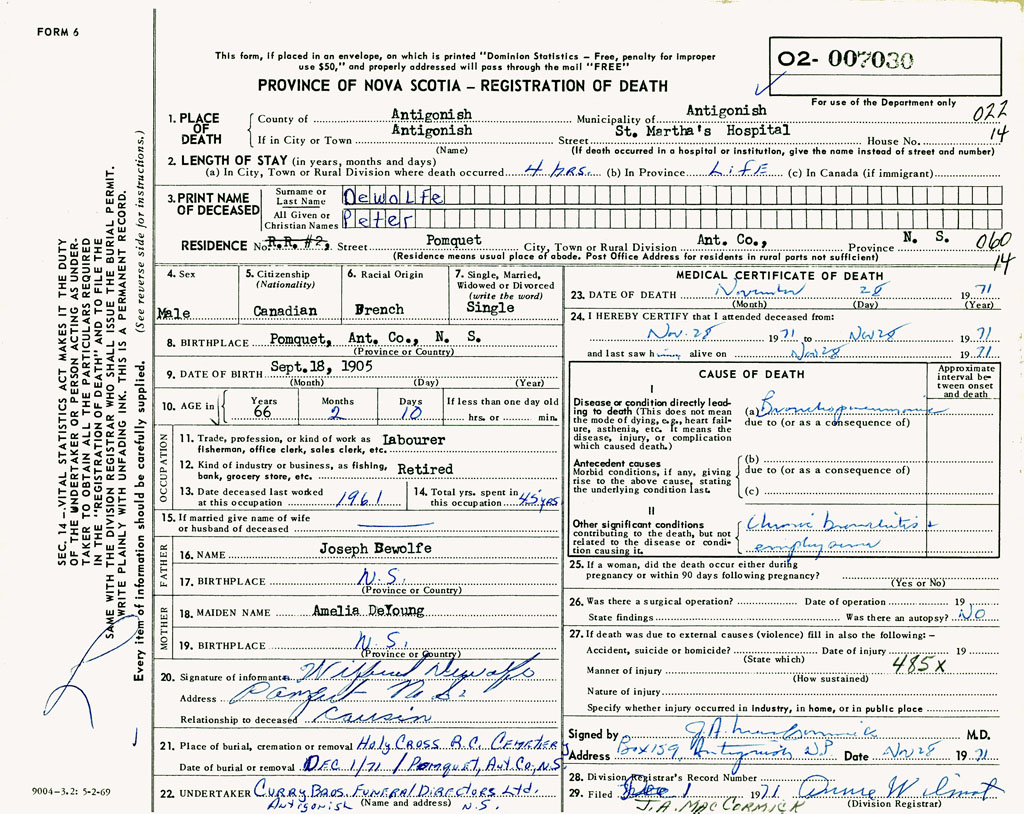 FORM 6
This form, if placed in an envelope, on which is printed "Dominion Statistics – Free, penalty for improper
use $50," and properly addressed will pass through the mail "FREE"
02- 007030
PROVINCE OF NOVA SCOTIA – REGISTRATION OF DEATH
For use of the Department only
022
14
1. PLACE OF DEATH
County of Antigonish Municipality of Antigonish
If in City or Town Antigonish Street St. Martha's Hospital House No.
(Name) (If death occurred in a hospital or institution, give the name instead of street and number)
2. LENGTH OF STAY (in years, months and days)
(a) In City, Town or Rural Division where death occurred 4 hrs. (b) In Province Life (c) In Canada (if immigrant)
3. PRINT NAME OF DECEASED
Surname or Last Name Dewolfe
All Given or Christian Names Peter
RESIDENCE No. R.R. #2, Street Pomquet City, Town or Rural Division Ant. Co., Province N. S.
(Residence means usual place of abode. Post Office Address for residents in rural parts not sufficient)
060
14
4. Sex
Male
5. Citizenship
(Nationality)
Canadian
6. Racial Origin
Brench
7. Single, Married,
Widowed or Divorced
(write the word)
Single
8. BIRTHPLACE Pomquet, Ant. Co., N. S.
(Province or Country)
9. DATE OF BIRTH Sept.18, 1905
(Month) (Day) (Year)
10. AGE in
Years Months Days If less than one day old
66 2 10 hrs. or min.
OCCUPATION
11. Trade, profession, or kind of work as Labourer
fisherman, office clerk, sales clerk, etc.
12. Kind of industry or business, as fishing, Retired
bank, grocery store, etc.
13. Date deceased last worked
at this occupation 1961
14. Total yrs. spent in
this occupation 45 yrs
15. If married give name of wife
or husband of deceased
FATHER
16. NAME Joseph Bewolfe
17. BIRTHPLACE N.S.
(Province or Country)
MOTHER
18. MAIDEN NAME Amelia DeYoung
19. BIRTHPLACE N.S.
(Province or Country)
20. Signature of informant Wilfred Dewolfe
Address Pomquet N.S.
Relationship to deceased Causin
21. Place of burial, cremation or removal Holy Cross R.C. Cemetery
Date of burial or removal DEC 1/71 / Pomquet, Ant Co, N.S.
22. UNDERTAKER Curry Bros. Funeral Directors Ltd.
Antigonish (Name and address) N.S.
MEDICAL CERTIFICATE OF DEATH
23. DATE OF DEATH November 28 1971
(Month) (Day) (Year)
24. I HEREBY CERTIFY that I attended deceased from:
Nov. 28 1971 to Nov 28 1971
and last saw him alive on Nov 28 1971
CAUSE OF DEATH
Approximate
interval be-
tween onset
and death
I
Disease or condition directly lead-
ing to death (This does not mean
the mode of dying, e.g., heart fail-
ure, asthenia, etc. It means the
disease, injury, or complication
which caused death.)
(a) Bronchopneumonia
due to (or as a consequence of)
Antecedent causes
Morbid conditions, if any, giving
rise to the above cause, stating
the underlying condition last.
(b)
due to (or as a consequence of)
(c)
II
Other significant conditions
contributing to the death, but not
related to the disease or condi-
tion causing it.
Chronic bronchitis +
emphysema
25. If a woman, did the death occur either during
pregnancy or within 90 days following pregnancy?
(Yes or No)
26. Was there a surgical operation? Date of operation 19
State findings Was there an autopsy? No
27. If death was due to external causes (violence) fill in also the following: –
Accident, suicide or homicide? Date of injury 19
(State which)
485x
Manner of injury
(How sustained)
Nature of injury
Specify whether injury occurred in industry, in home, or in public place
Signed by J.A. MacCormick M.D.
Address Box 159, Antigonish N.S. Date Nov 28 1971
28. Division Registrar's Record Number
29. Filed Dec 1 1971 Anne Wilmot
J.A. MACCORMICK (Division Registrar)
SEC. 14 –VITAL STATISTICS ACT MAKES IT THE DUTY
OF THE UNDERTAKER OR PERSON ACTING AS UNDER-
TAKER TO OBTAIN ALL THE PARTICULARS REQUIRED
IN THE "REGISTRATION OF DEATH" AND TO FILE THE
SAME WITH THE DIVISION REGISTRAR WHO SHALL ISSUE THE BURIAL PERMIT.
WRITE PLAINLY WITH UNFADING INK. THIS IS A PERMANENT RECORD.
Every item of information should be carefully supplied. (See reverse side for instructions.)
9004–3.2: 5-2-69